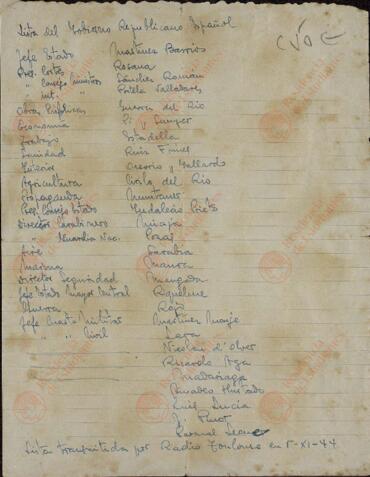 Lista del Gobierno Republicano Español
CNDE
Jefe Estado Martinez Barrios
Pres. Cortes Rosana
" Consejo Ministros Sánchez Roman
" Int. Portela Valladares
Obras Públicas Guerra del Rio
Economia Pi y Sunyer
Trabajo Estadella
Sanidad Ruiz Funes
Exterior Ossorio y Gallardo
Agricultura Cirilo del Rio
Propaganda
Pres. Consejo Estado Indalecio Prieto
Director Carabineros Miaja
" Guardia Nac. Pozas
Aire
Marina Maura
Director Seguridad Mangada
Jefe Estado Mayor Central Riquelme
Guerra Rojo
Jefe Cuarto Militar Martinez Monje
" " Civil Lara
Nicolau d'Olwer
Madariaga
Amadeo Hurtado
Luis Lucia
Lista transmitida por Radio Toulouse en 5-XI-44